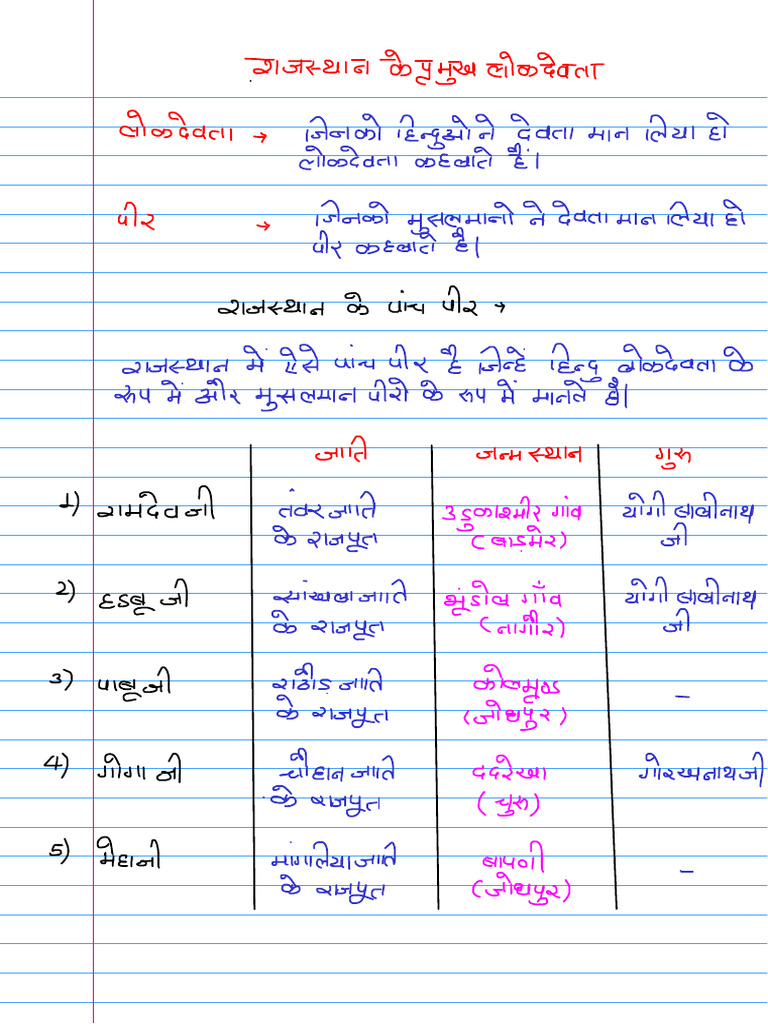 राजस्थान के प्रमुख लोकदेवता
लोकदेवता → जिनको हिन्दुओ ने देवता मान लिया हो
लोकदेवता कहलाते हैं।
पीर → जिनको मुसलमानो ने देवता मान लिया हो
पीर कहलाते है।
राजस्थान के पांच पीर →
राजस्थान में ऐसे पांच पीर है जिन्हें हिन्दु लोकदेवता के
रूप में और मुसलमान पीरो के रूप में मानते है।
जाति जन्म स्थान गुरु
1) रामदेव जी तंवर जाति उडुकाश्मीर गांव योगी बालीनाथ
के राजपूत (बाडमेर) जी
2) हडबू जी सांखला जाति भूंडोल गाँव योगी बालीनाथ
के राजपूत (नागौर) जी
3) पाबू जी राठौड जाति कोलमूण्ड -
के राजपूत (जोधपुर)
4) गोगा जी चौहान जाति ददरेखा गोरखनाथ जी
के राजपूत (चुरू)
5) मेहाजी मांगलिया जाति बापणी -
के राजपूत (जोधपुर)